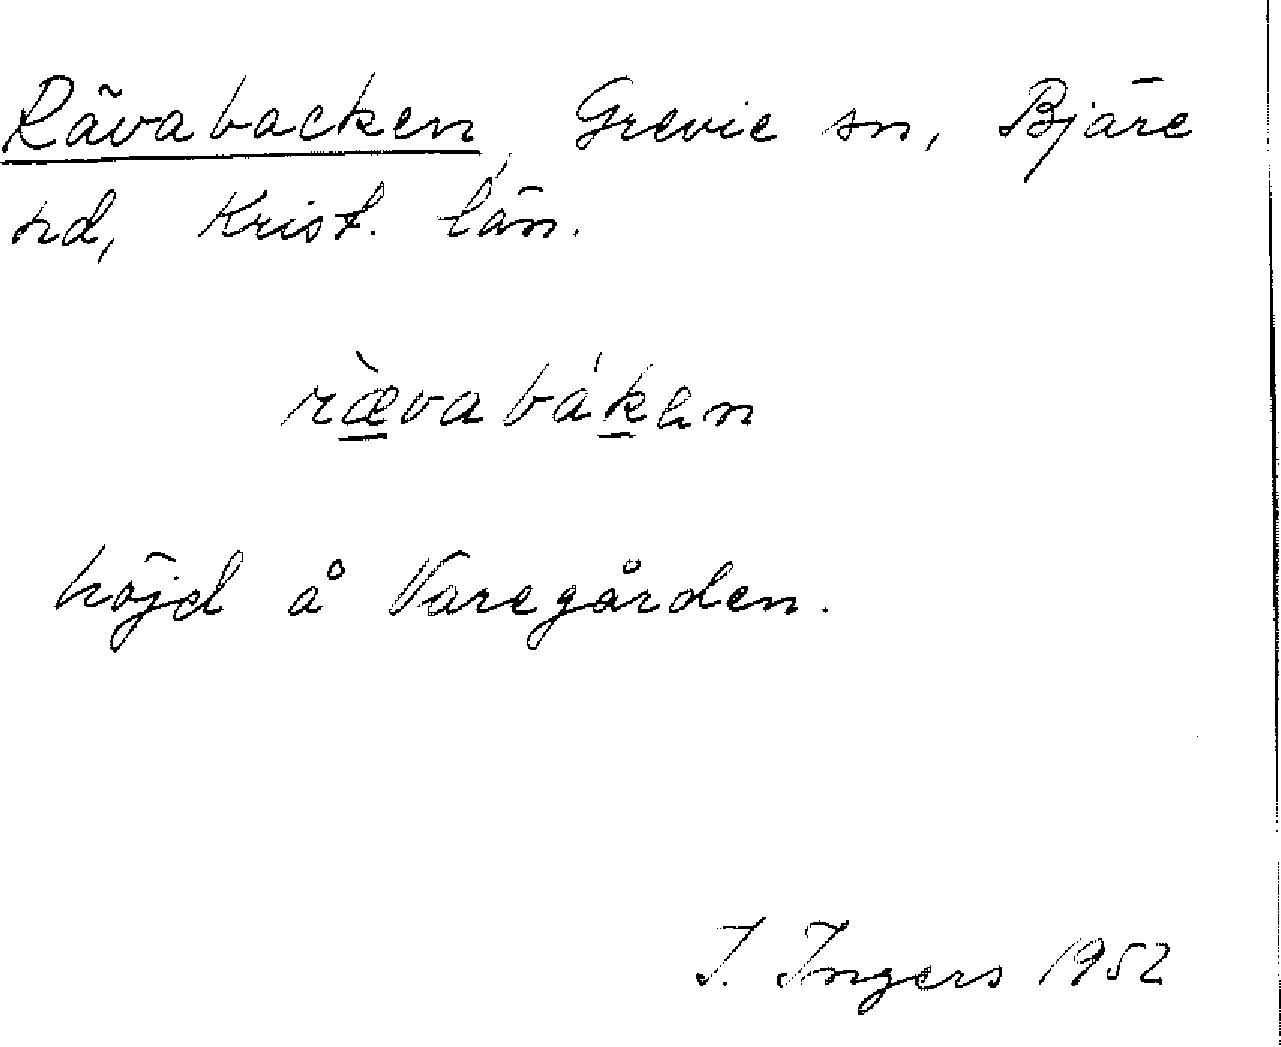 Rävabacken, Grevie sn, Bjäre
hd, Krist. län.
ræ̀vabákən
höjd å Varegården.
I. Ingers 1952